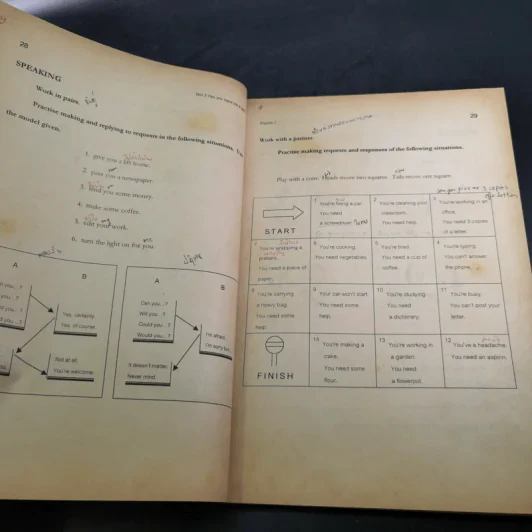 28
SPEAKING
Work in pairs.
Practise making and replying to requests in the following situations.
the model given.
1. give you a lift home.
2. pass you a newspaper.
3. lend you some money.
4. make some coffee.
5. edit your work.
6. turn the light on for you.
A
B
you...?
you...?
you...?
Yes, certainly.
Yes, of course.
Not at all.
You're welcome.
A
B
Can you...?
Will you...?
Could you...?
Would you...?
I'm afraid
I'm sorry
It doesn't matter.
Never mind.
29
Work with a partner.
Practise making requests and responses of the following situations.
Play with a coin. Heads-move two squares. Tails-move one square.
START
1
You're fixing a car.
You need
a screwdriver.
2
You're cleaning your
classroom.
You need help.
3
You're working in an
office.
You need 3 copies
of a letter.
7
You're wrapping a
present.
You need a piece of
paper.
6
You're cooking.
You need vegetables.
5
You're tired.
You need a cup of
coffee.
4
You're typing.
You can't answer
the phone.
8
You're carrying
a heavy bag.
You need some
help.
9
Your car won't start.
You need some
help.
10
You're studying.
You need
a dictionary.
11
You're busy.
You can't post your
letter.
FINISH
14
You're making a
cake.
You need some
flour.
13
You're working in
a garden.
You need
a flowerpot.
12
You've a headache.
You need an aspirin.